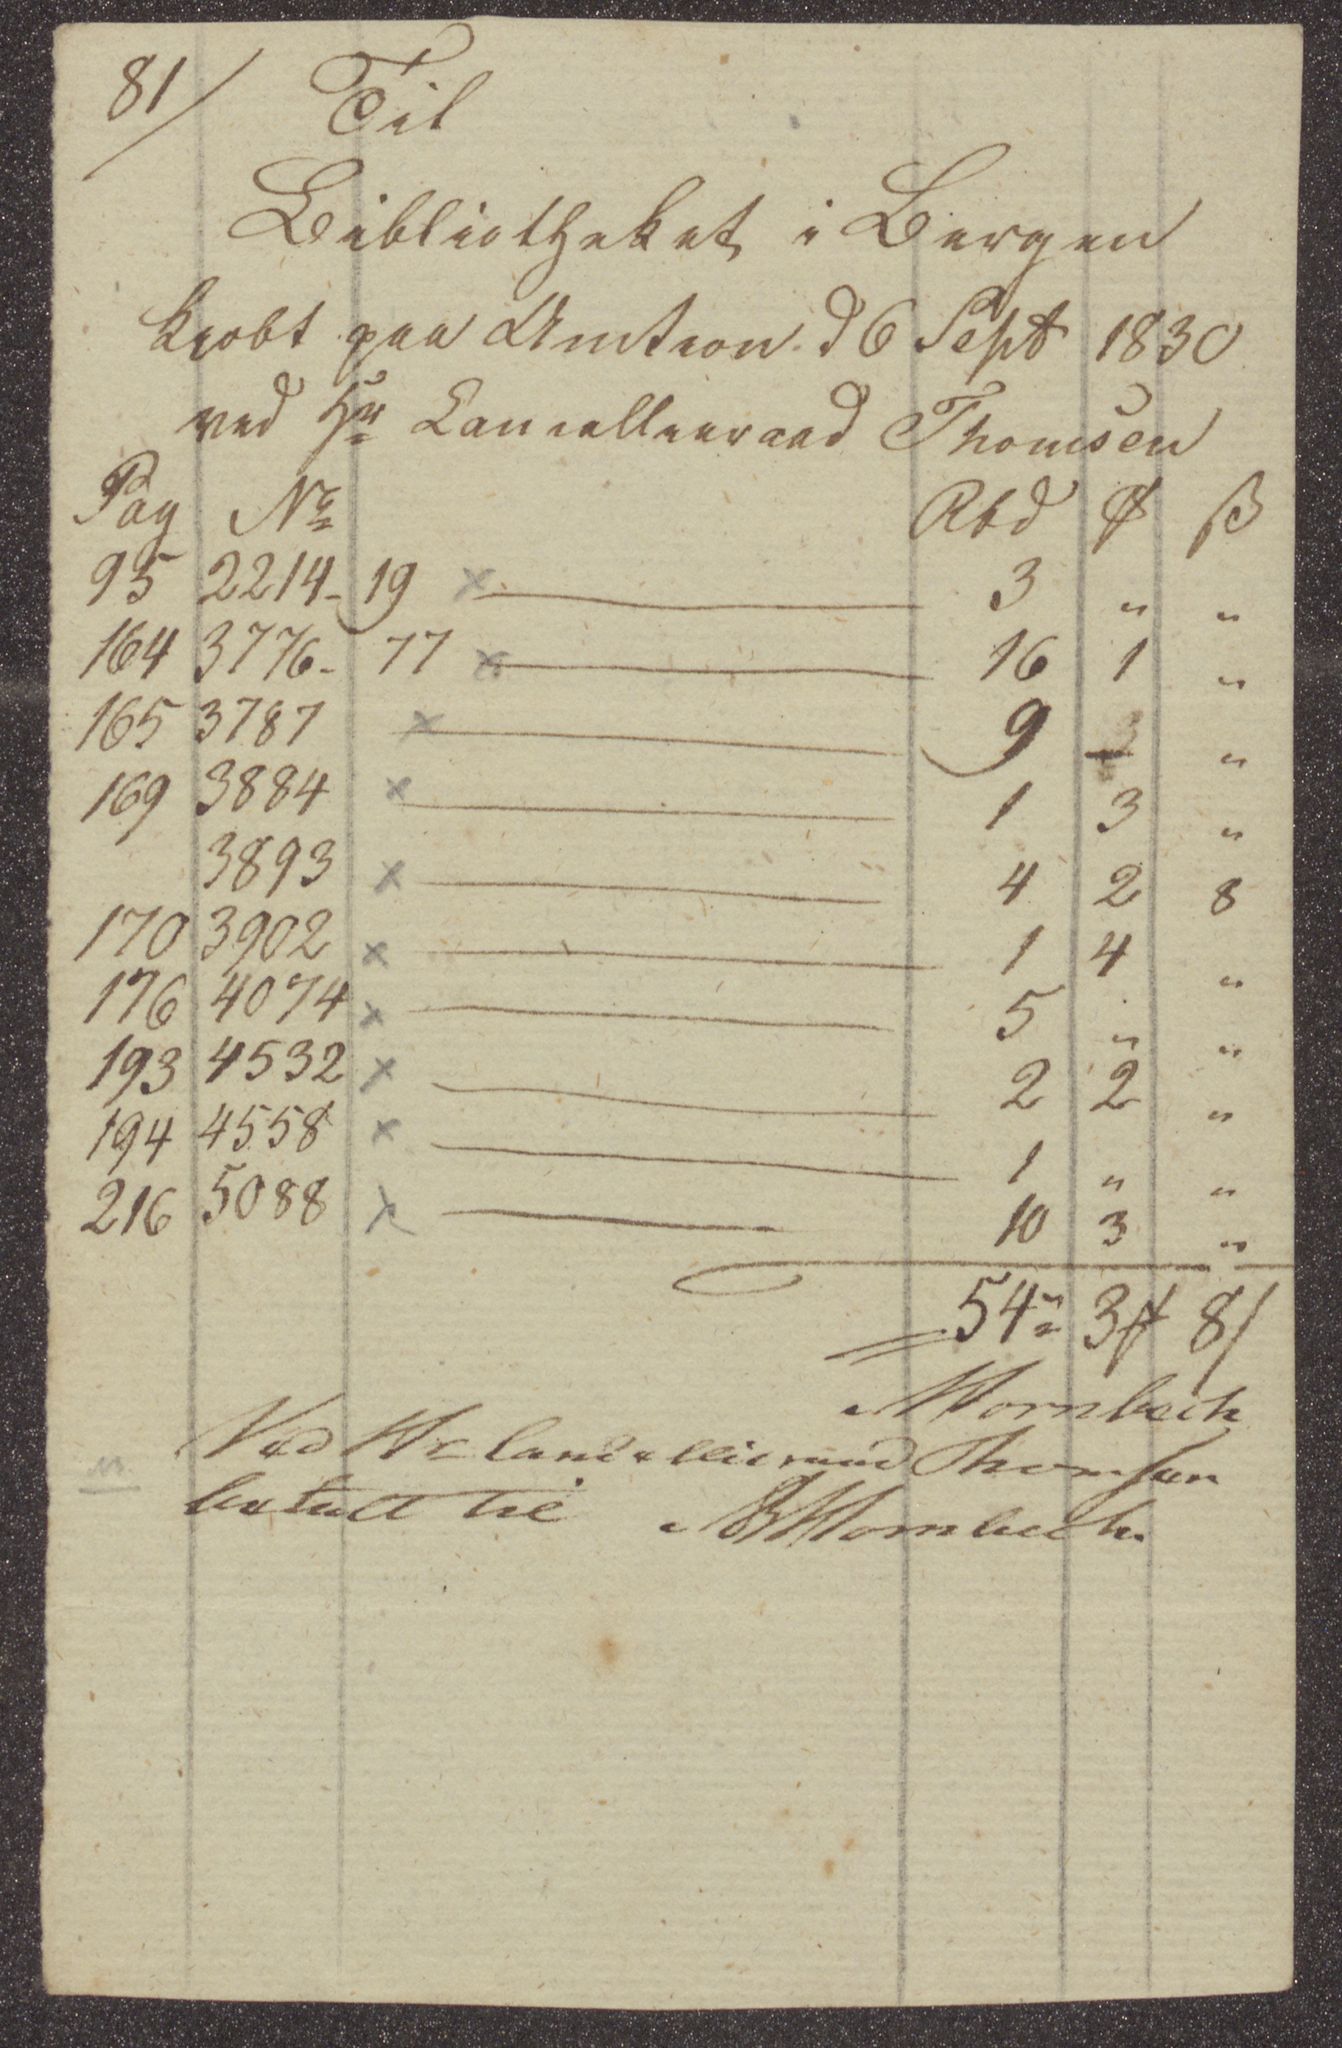 81/ Til
Bibliotheket i Bergen
kiøbt paa Auction d 6 Sept 1830
ved Hr Cancelleeraad Thomsen
Pag No Rbd ₰ ß
95 2214-19 × 3 " "
164 3776-77 × 16 1 "
165 3787 × 9 "
169 3884 × 1 3 "
3893 × 4 2 8
170 3902 × 1 4 "
176 4074 × 5 " "
193 4532 × 2 2 "
194 4558 × 1 " "
216 5088 × 10 3 "
54 3 ₰ 8 ß
Mornbech
Ved Hr Cancelliraad Thomsen
betalt til Mornbech